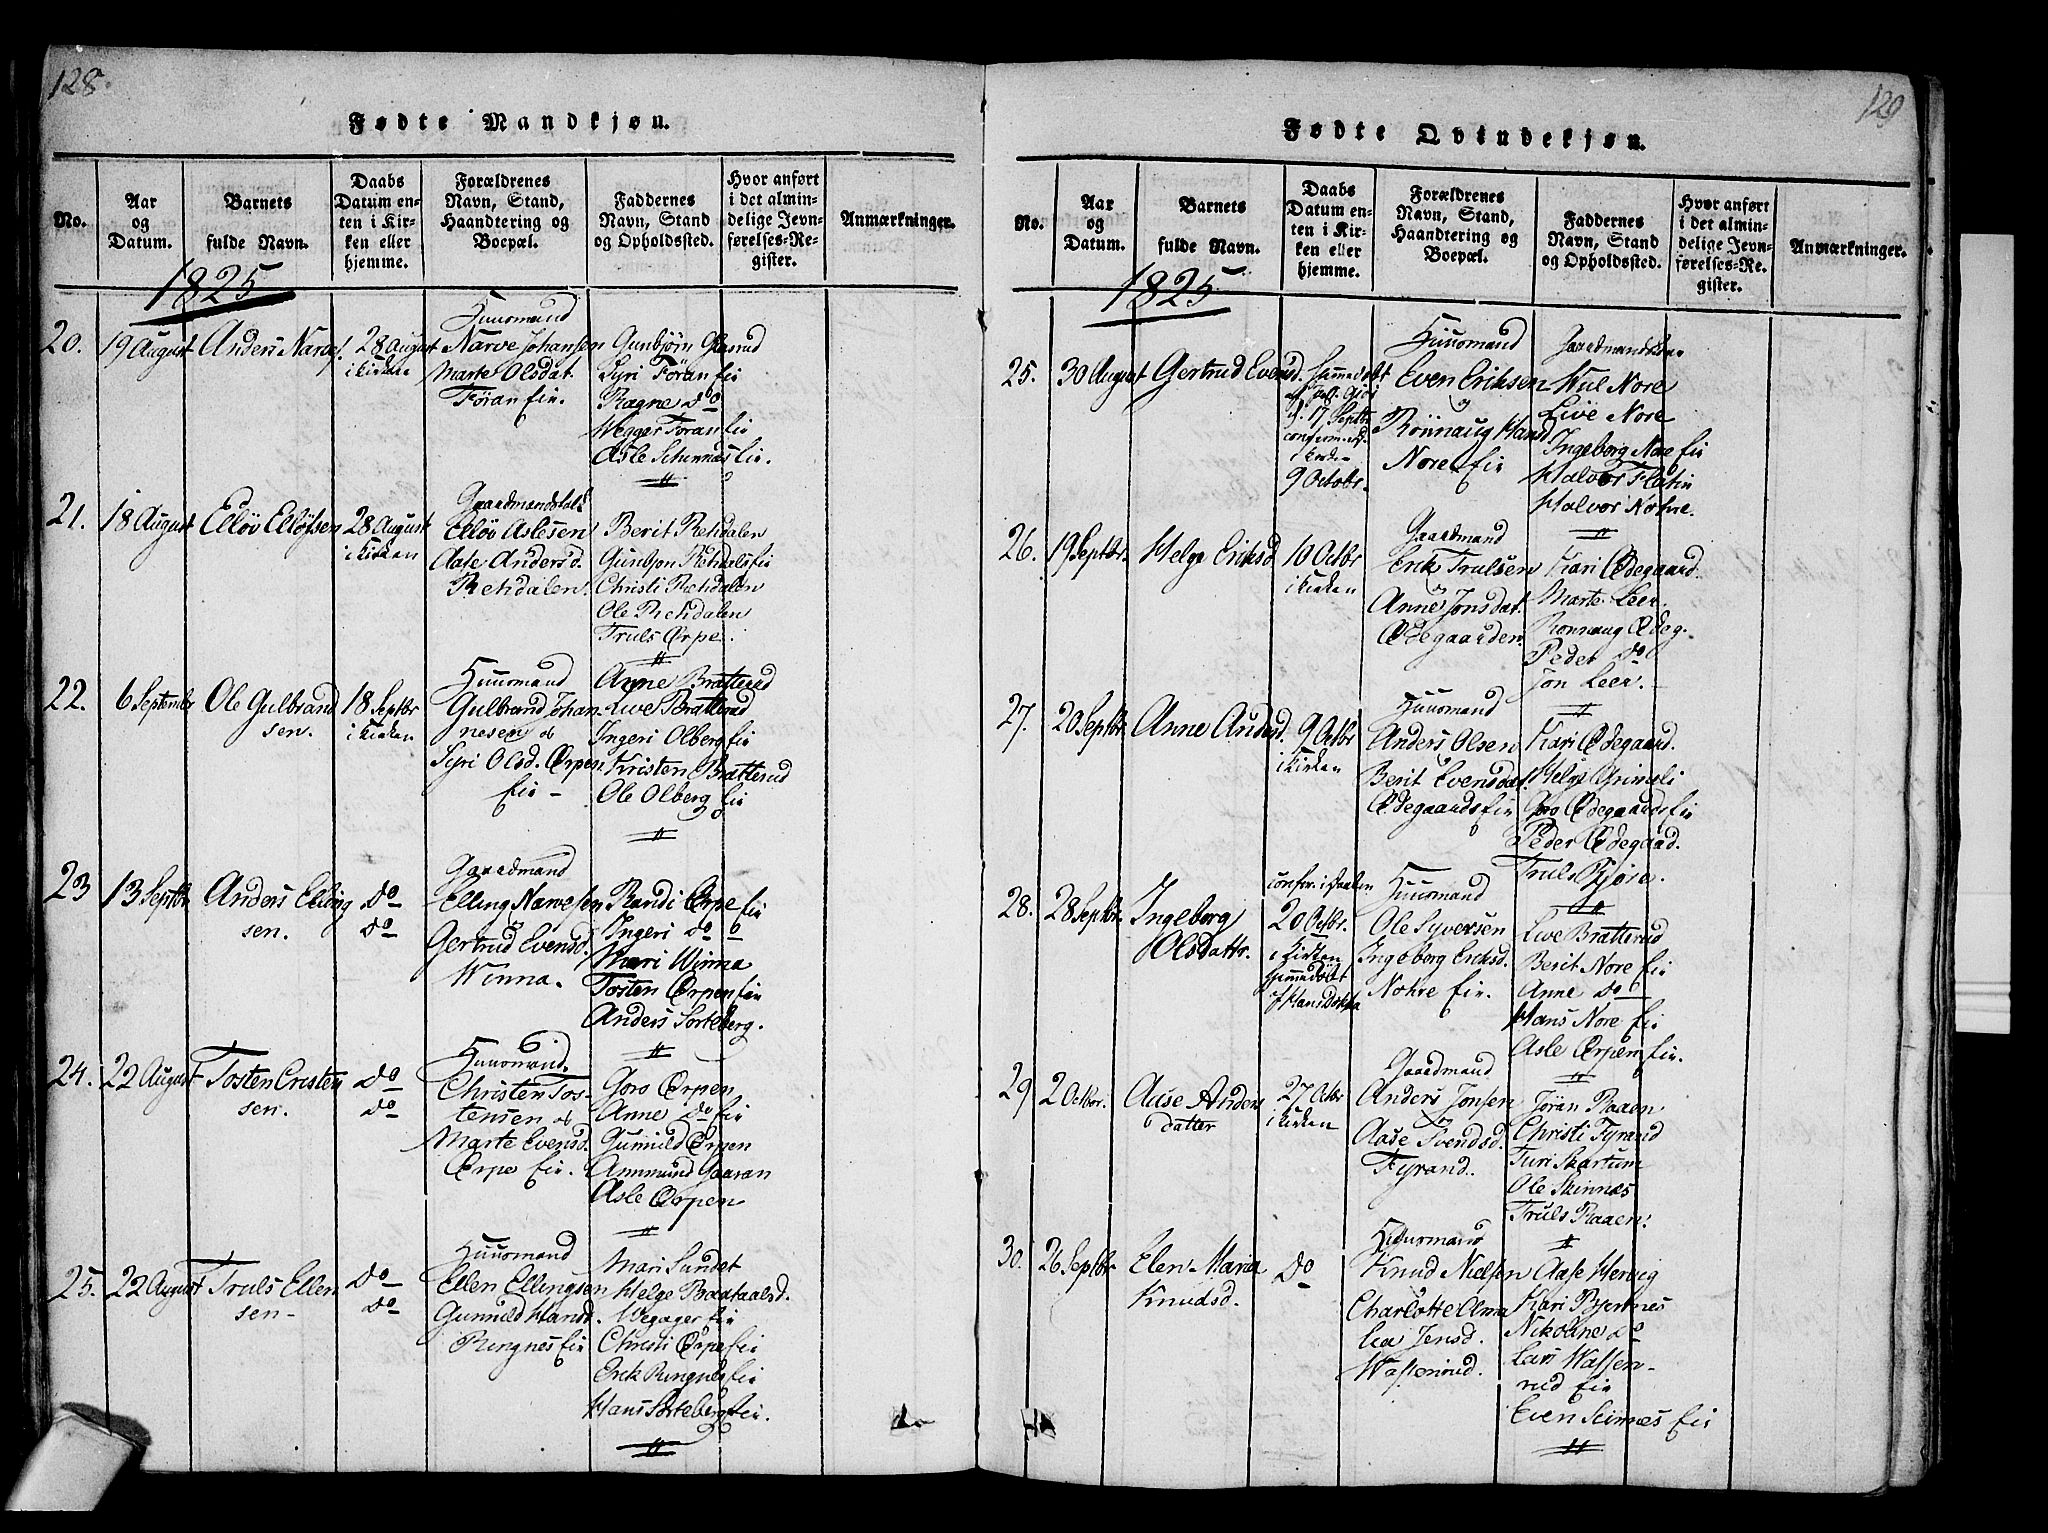 128.
Fødte Mandkjøn.
No.
Aar og Datum.
Barnets fulde Navn.
Daabs Datum enten i Kirken eller hjemme.
Forældrenes Navn, Stand, Haandtering og Boepæl.
Faddernes Navn, Stand og Opholdssted.
Hvor anført i det almindelige Jevnførelses-Register.
Anmærkninger.
1825
20.
19 August
Anders Narvs.
28 August
i Kirken
Huusmand
Narve Johansen
Marte Olsdat.
Føran Eie.
Gunbjörn
Syri Föran Eie
Ragne do
Wegger Föran Eie
Asle
21.
18 August
Ellöv Ellöfsen
28 August
i Kirken
Ellöv Aslesen
Aase Andersd.
Rehdalen.
Berit Rehdalen
Gunbjon Rehdals Eie
Christi Rehdalen
Ole Rehdalen
Truls Ørpe.
22.
6 September
Ole Gulbrand
sen.
18 Septbr
i Kirken
Huusmand
Gulbrand Johan-
nesen og
Syri Olsd. Ørpen
Eie -
Anne Bratterud
Live Bratterud
Ingeri Olberg Eie
Kristen Bratterud
Ole Olberg Eie
23
13 Septbr
Anders Elling
sen.
Do
Do
Gaardmand
Elling Narvesen
Gertrud Evensd.
Winna.
Randi Ørpe Eie
Ingeri do
Mari Winna
Tosten Ørpen Eie
Anders Sorteberg.
24.
22 August
Tosten Cristen
sen.
Do
Do
Huusmand.
Christen Tos-
tensen og
Marte Evensd.
Ørpe Eie.
Goro Ørpen
Anne do Eie
Gunnild Ørpen
Ammund Gaaran
Asle Ørpen
25.
22 August
Truls Ellen
sen-
Do
Do
Huusmand
Ellen Ellingsen
Gunnild Hansd.
Ringnes Eie
Mari Sundet
Helge
Eie
Christi Ørpe Eie
Erik Ringnes Eie
Hans Sorteberg Eie.
129
Fødte Qvindekjøn.
No.
Aar og Datum.
Barnets fulde Navn.
Daabs Datum enten i Kirken eller hjemme.
Forældrenes Navn, Stand, Haandtering og Boepæl.
Faddernes Navn, Stand og Opholdssted.
Hvor anført i det almindelige Jevnførelses-Register.
Anmærkninger.
1825
25.
30 August
Gertrud Evensd.
Hjemmedöbt
d. 17 Septbr
i Kirken
9 Octobr.
Huusmand
Even Eriksen
og
Rönnaug Hansd
Nore Eie
Wul Nore
Live Nore
Ingeborg Nore Eie
Halvor Flatin
Halvor Nohre.
26.
19 Septbr.
Helge Eriksd
10 Octbr
i Kirken
Gaardmand
Erik Trulsen
Anne Jonsdat.
Ødegaarden
Kari Ødegaard.
Marte Leer.
Rönnaug Ødeg.
Peder do
Jon Leer.
27.
20 Septbr.
Anne Andersd.
9 Octbr
i Kirken
Huusmand
Anders Olsen
Berit Evensdat.
Ødegaards Eie
Kari Ødegaard.
Helge Grimsli
Goro Ødegaards Eie
Peder Ødegaad.
Truls Björe.
28.
28 Septbr.
Ingeborg
Olsdattr.
20 Octbr.
i Kirken
Hjemmedöbt
Huusmand
Ole Syversen
Ingeborg Eriksd.
Nohre Eie.
Live Bratterud
Berit Nore Eie
Anne do
Hans Nore Eie
Asle Ørpen Eie.
29
2 Octbr.
Aase Anders
datter
27 Octbr
i Kirken
Gaardmand
Anders Jonsen
Aase Svendsd.
Fyrand.
Jöran Raaen
Christi Fyrand
Turi Skartum
Ole Skinnæs
Truls Raaen.
30.
26 Septbr.
Elen Maria
Knudsd.
Do
Huusmand
Knud Nielsen
Charlotte Ama
lia Jensd.
Wassenrud.
Aase Hervig
Kari Bjertnes
Nikoline do
Lars Wassen-
rud Eie
Even Skinnæs Eie